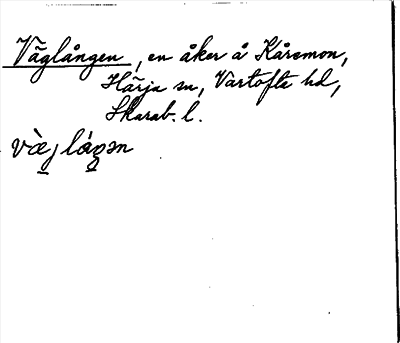 Väglången, en åker å Kåremon,
Härja sn, Vartofte hd,
Skarab. l.
væ̀j láŋən